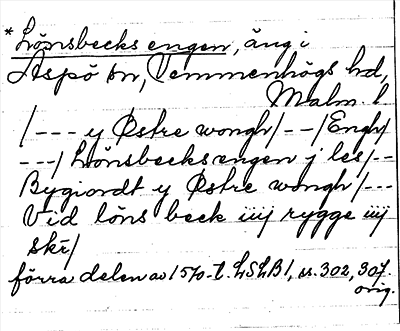 *Lönsbecks engen, äng i
Aspö sn, Vemmenhögs hd,
Malm. l
/--- y Østre wongh/--/Engh/
---/ Lönsbecks engen j les/--
Bygiordt y Østre wongh/---
Vid löns beck iiij rygge iiij
skr/
förra delen av 1570-t. LSLB 1, ss. 302, 307.
orig.